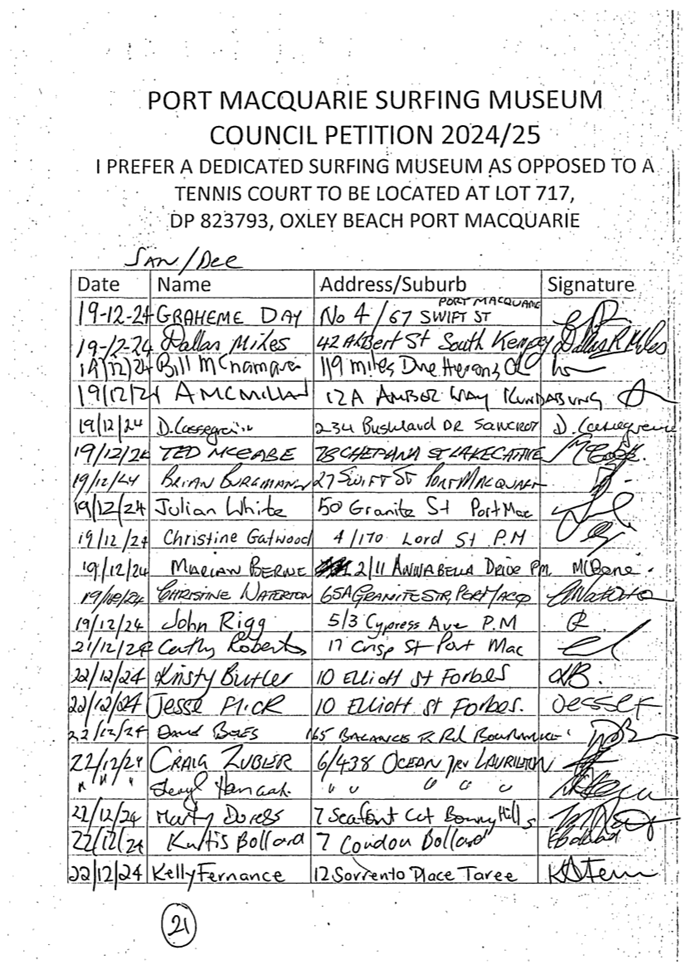 PORT MACQUARIE SURFING MUSEUM
COUNCIL PETITION 2024/25
I PREFER A DEDICATED SURFING MUSEUM AS OPPOSED TO A
TENNIS COURT TO BE LOCATED AT LOT 717,
DP 823793, OXLEY BEACH PORT MACQUARIE
SAN/Dee
Date Name Address/Suburb Signature
19-12-24 GRAHEME DAY No 4/67 SWIFT ST PORT MACQUARIE
19-12-24 Dallas Miles 42 Albert St South Kempsey Dallas R Miles
19/12/24 Bill McNamara 119 miles
19/12/24 A MCMILLAN 12A AMBOR WAY KUNDABUNG
19/12/24 D. Cassegrain 234 Bushland DR SANCROX D. Cassegrain
19/12/24 TED MCCABE 78 LAKE CATHIE
19/12/24 BRIAN 27 SWIFT ST PORT MACQUARIE
19/12/24 Julian White 50 Granite St Port Mac
19/12/24 Christine Gatwood 4/170 Lord St P.M
19/12/24 MARIAN BERNE 2/11 ANNABELLA DRIVE P.M.
CHRISTINE WATERTON 65A GRANITE STR, PORT MACQ
19/12/24 John Rigg 5/3 Cypress Ave P.M
21/12/24 Cathy Roberts 17 Crisp St Port Mac
22/12/24 Kirsty Butler 10 Elliott St Forbes KB.
22/12/24 Jesse 10 Elliott St Forbes. Jesse
22/12/24 DAVID
22/12/24 CRAIG ZUBLER 6/438 OCEAN DRV LAURIETON
" " " " " " "
22/12/24 Marty 7 Seafront Cct Bonny Hills
22/12/24 Kurtis Bollard 7 Bollard
22/12/24 Kelly Fernance 12 Sorrento Place Taree
21